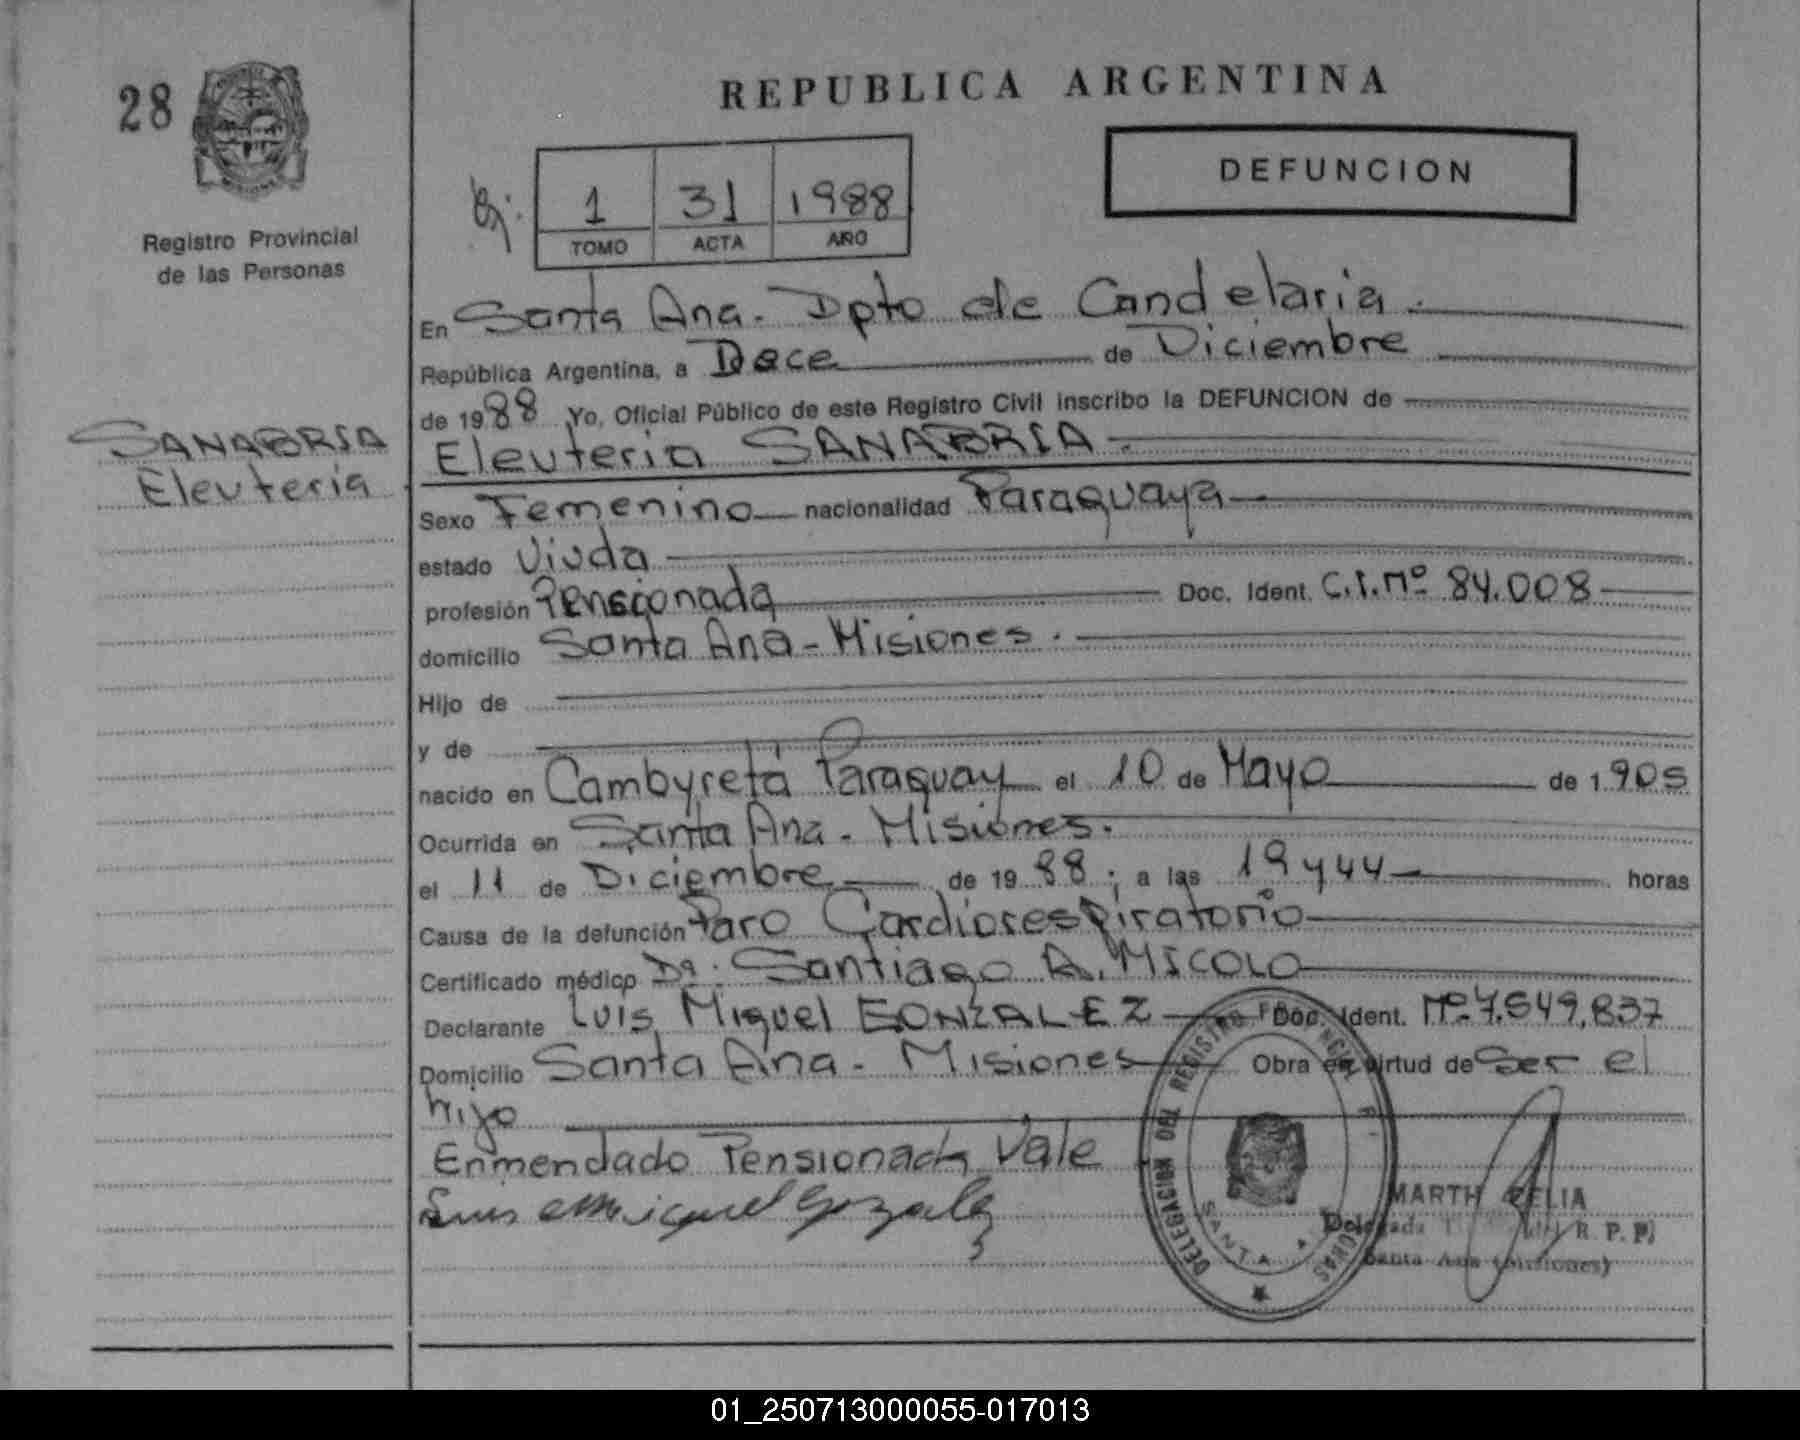 28
REPUBLICA ARGENTINA
DEFUNCION
1 31 1988
TOMO ACTA AÑO
Registro Provincial
de las Personas
En Santa Ana. Dpto de Candelaria.
República Argentina, a Doce de Diciembre
de 1988 Yo, Oficial Público de este Registro Civil inscribo la DEFUNCION de
SANABRIA
Eleuteria
Eleuteria SANABRIA.
Sexo Femenino nacionalidad Paraguaya
estado Viuda
profesión Pensionada Doc. Ident. C.I. Nº 84.008
domicilio Santa Ana - Misiones.
Hijo de
y de
nacido en Cambyretá Paraguay el 10 de Mayo de 1.905
Ocurrida en Santa Ana - Misiones.
el 11 de Diciembre de 1988; a las 19 y 44 horas
Causa de la defunción Paro Cardiorespiratorio
Certificado médico Santiago A. MICOLO
Declarante Luis Miguel GONZALEZ Doc. Ident. Nº 7.549.837
Domicilio Santa Ana - Misiones Obra en virtud de Ser el
hijo
Enmendado Pensionada Vale
Luis Miguel Gonzalez
DELEGACION DEL REGISTRO
SANTA
MARTH CELIA
Delegada R. P. P)
Santa Ana (Misiones)
01_250713000055-017013